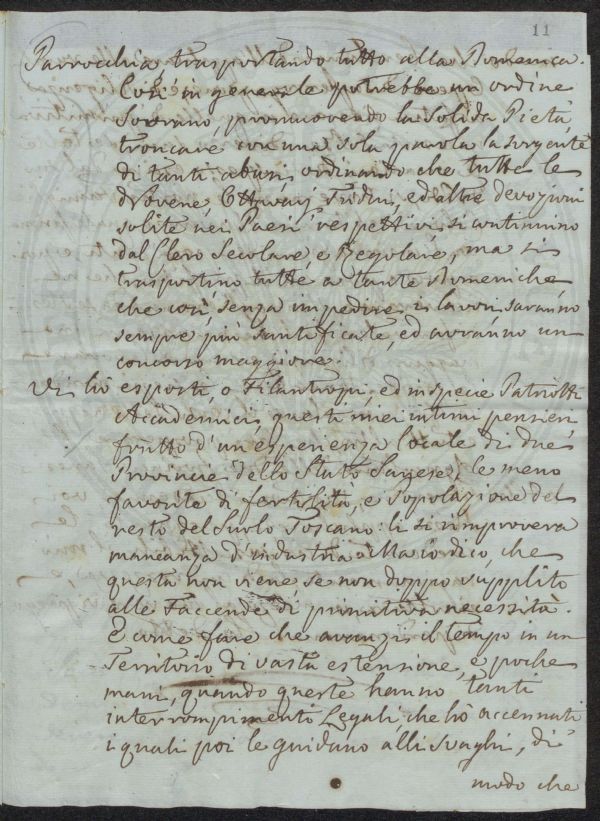 11
Parrocchia trasportando tutto alla Domenica.
Così in generale potrebbe un ordine
Sovrano, promuovendo la solida Pietà
troncare con una sola parola la sorgente
di tanti abusi, ordinando che tutte le
Novene, Ottavarj Tridui, ed altre devozioni
solite nei Paesi respettivi si continuino
dal Clero Secolare e Regolare, ma si
trasportino tutte a tante Domeniche
che così, senza impedire i lavori saranno
sempre più santificate, ed avranno un
concorso maggiore.
Vi hò esposti, o Filantropi, ed in specie Patriotti
Accademici, questi miei intimi pensieri
frutto d'un esperienza locale di due
Provincie dello Stato Sanese, le meno
favorite di fertilità, e Popolazione del
resto del Suolo Toscano: li si rimprovera
mancanza d'industria. Ma io dico, che
questa non viene se non doppo supplito
alle Faccende di primitiva necessità.
E come fare che avanzi il tempo in un
Territorio di vasta estensione, e poche
mani, quando queste hanno tanti
interrompimenti Legali che hò accennati
i quali poi le guidano alli svaghi, di
modo che